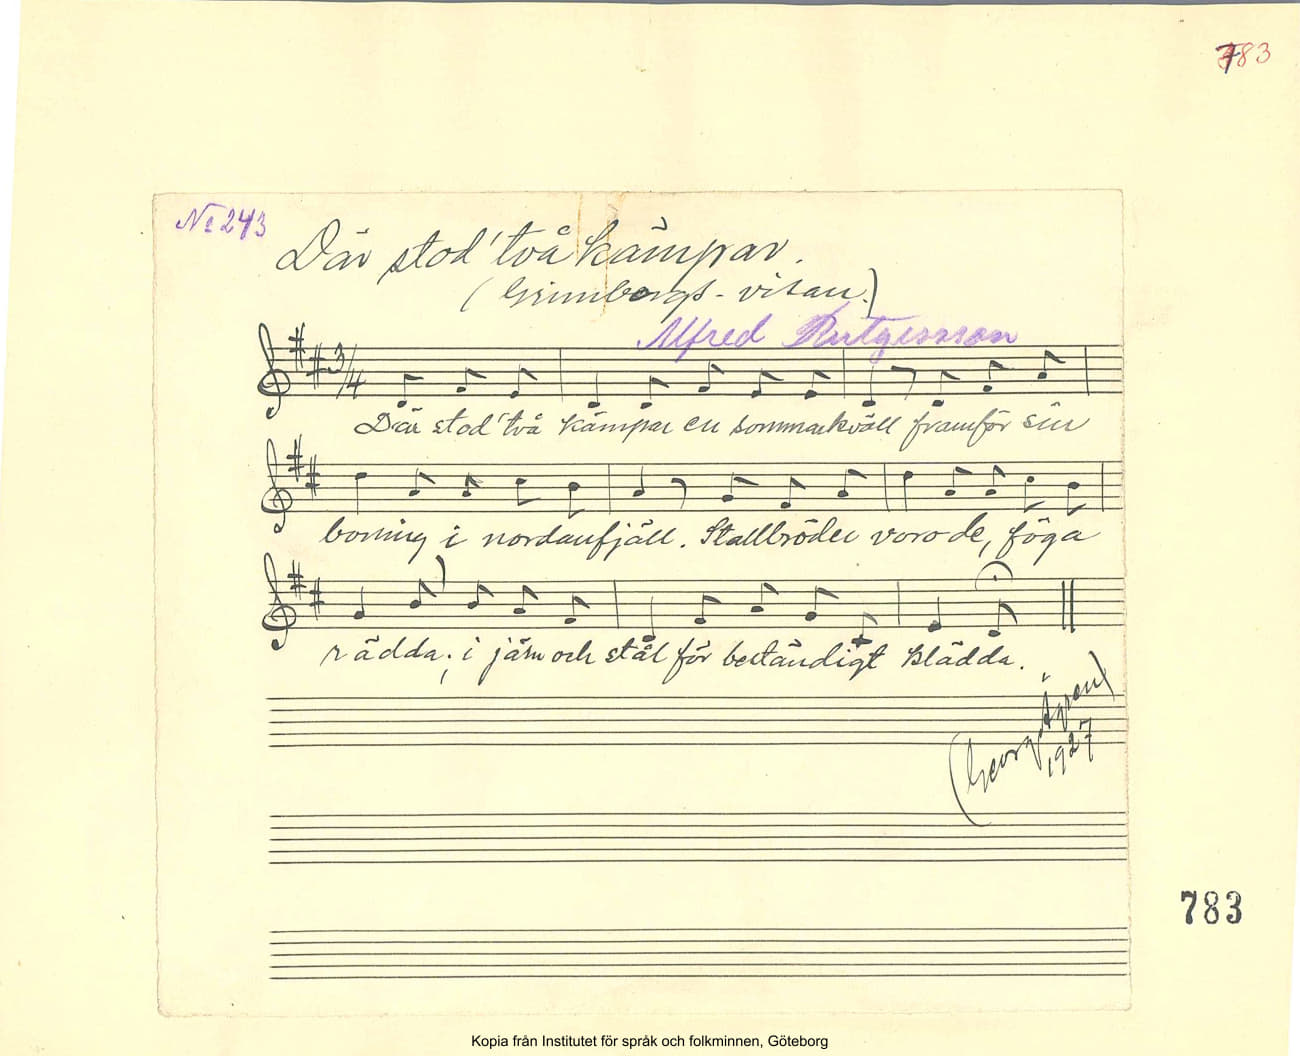 783
No 243
Där stod' två kämpar.
(Grimborgs-visan.)
Alfred Rutgersson
3/4
Där stod' två kämpar en sommarkväll framför sin
boning i nordanfjäll. Stallbröder voro de, föga
rädda; i järn och stål för beständigt klädda.
(Georg Ågren)
1927
783
Kopia från Institutet för språk och folkminnen, Göteborg